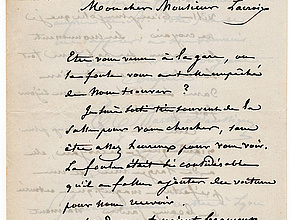 Mon cher Monsieur Lacroix
Etes vous venu à la gare, ou
la foule vous a-t-elle empêché
de nous trouver ?
Je suis sorti très souvent de la
salle pour vous chercher, sans
être assez heureux pour vous voir.
La foule était si considérable
qu'il a fallu ajouter des voitures
pour nous recevoir.